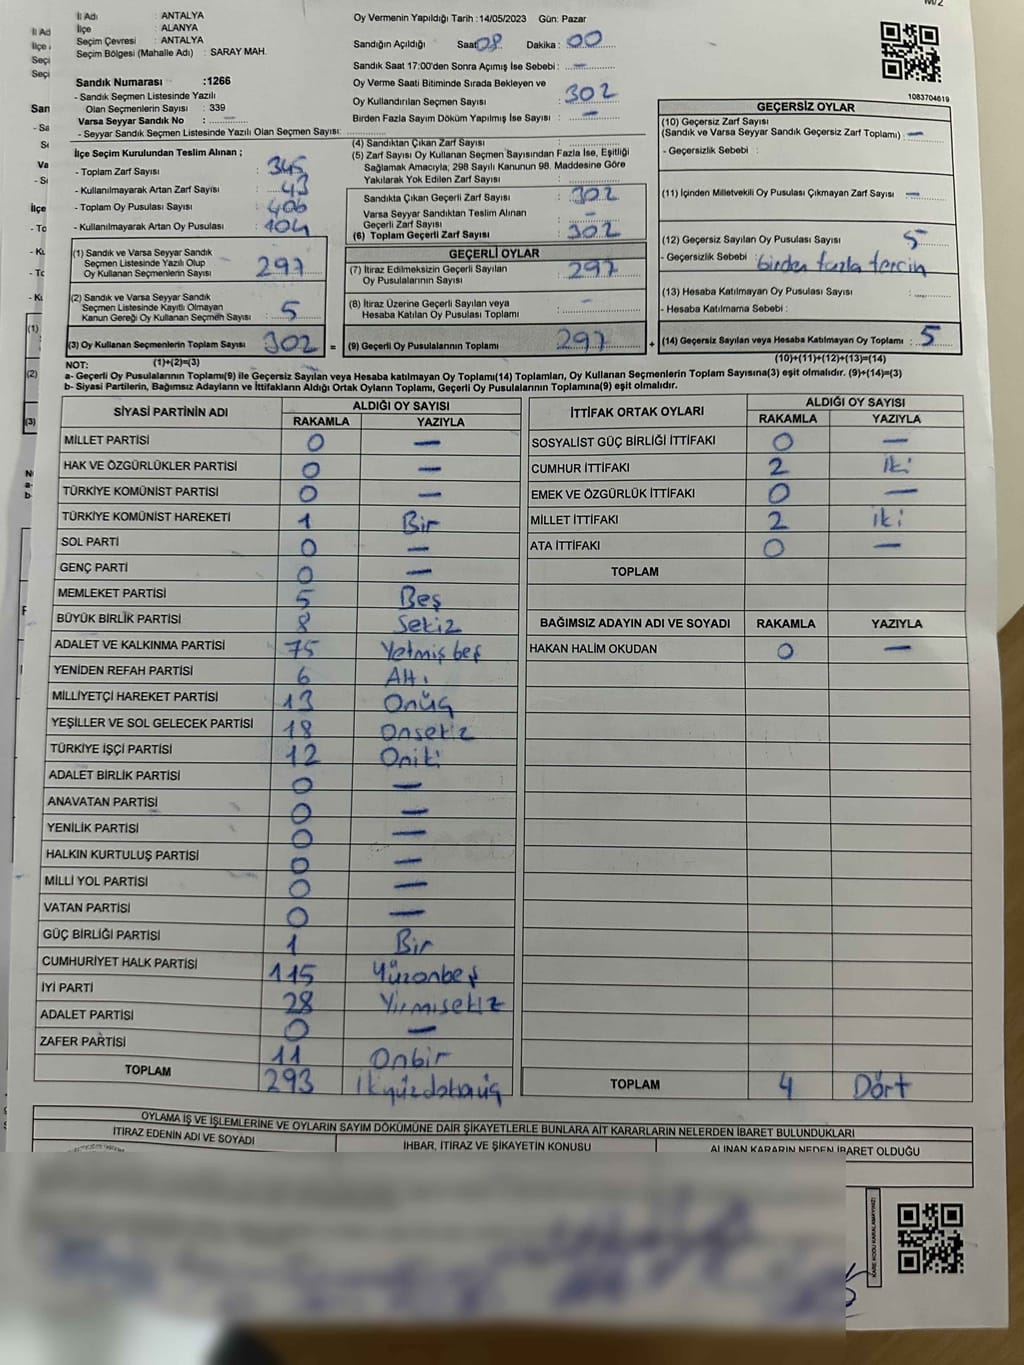 M/2
İl Adı : ANTALYA
İlçe : ALANYA
Seçim Çevresi : ANTALYA
Seçim Bölgesi (Mahalle Adı) : SARAY MAH.
Sandık Numarası :1266
- Sandık Seçmen Listesinde Yazılı
Olan Seçmenlerin Sayısı : 339
Varsa Seyyar Sandık No :
- Seyyar Sandık Seçmen Listesinde Yazılı Olan Seçmen Sayısı:
Oy Vermenin Yapıldığı Tarih :14/05/2023 Gün: Pazar
Sandığın Açıldığı Saat: 08 Dakika : 00
Sandık Saat 17:00'den Sonra Açımış İse Sebebi : —
Oy Verme Saati Bitiminde Sırada Bekleyen ve
Oy Kullandırılan Seçmen Sayısı : 302
Birden Fazla Sayım Döküm Yapılmış İse Sayısı : —
1083704619
İlçe Seçim Kurulundan Teslim Alınan ;
- Toplam Zarf Sayısı : 345
- Kullanılmayarak Artan Zarf Sayısı : 43
- Toplam Oy Pusulası Sayısı : 406
- Kullanılmayarak Artan Oy Pusulası : 104
(1) Sandık ve Varsa Seyyar Sandık
Seçmen Listesinde Yazılı Olup
Oy Kullanan Seçmenlerin Sayısı : 297
(2) Sandık ve Varsa Seyyar Sandık
Seçmen Listesinde Kayıtlı Olmayan
Kanun Gereği Oy Kullanan Seçmen Sayısı : 5
(3) Oy Kullanan Seçmenlerin Toplam Sayısı 302 =
(4) Sandıktan Çıkan Zarf Sayısı :
(5) Zarf Sayısı Oy Kullanan Seçmen Sayısından Fazla İse, Eşitliği
Sağlamak Amacıyla; 298 Sayılı Kanunun 98. Maddesine Göre
Yakılarak Yok Edilen Zarf Sayısı :
Sandıkta Çıkan Geçerli Zarf Sayısı : 302
Varsa Seyyar Sandıktan Teslim Alınan
Geçerli Zarf Sayısı : —
(6) Toplam Geçerli Zarf Sayısı : 302
GEÇERLİ OYLAR
(7) İtiraz Edilmeksizin Geçerli Sayılan
Oy Pusulalarının Sayısı : 297
(8) İtiraz Üzerine Geçerli Sayılan veya
Hesaba Katılan Oy Pusulası Toplamı : —
(9) Geçerli Oy Pusulalarının Toplamı : 297 +
GEÇERSİZ OYLAR
(10) Geçersiz Zarf Sayısı
(Sandık ve Varsa Seyyar Sandık Geçersiz Zarf Toplamı) : —
- Geçersizlik Sebebi :
(11) İçinden Milletvekili Oy Pusulası Çıkmayan Zarf Sayısı : —
(12) Geçersiz Sayılan Oy Pusulası Sayısı : 5
- Geçersizlik Sebebi : birden fazla tercih
(13) Hesaba Katılmayan Oy Pusulası Sayısı :
- Hesaba Katılmama Sebebi :
(14) Geçersiz Sayılan veya Hesaba Katılmayan Oy Toplamı : 5
NOT: (1)+(2)=(3) (10)+(11)+(12)+(13)=(14)
a- Geçerli Oy Pusulalarının Toplamı(9) ile Geçersiz Sayılan veya Hesaba katılmayan Oy Toplamı(14) Toplamları, Oy Kullanan Seçmenlerin Toplam Sayısına(3) eşit olmalıdır. (9)+(14)=(3)
b- Siyasi Partilerin, Bağımsız Adayların ve İttifakların Aldığı Ortak Oyların Toplamı, Geçerli Oy Pusulalarının Toplamına(9) eşit olmalıdır.
SİYASİ PARTİNİN ADI ALDIĞI OY SAYISI
RAKAMLA YAZIYLA
MİLLET PARTİSİ 0 —
HAK VE ÖZGÜRLÜKLER PARTİSİ 0 —
TÜRKİYE KOMÜNİST PARTİSİ 0 —
TÜRKİYE KOMÜNİST HAREKETİ 1 Bir
SOL PARTİ 0 —
GENÇ PARTİ 0 —
MEMLEKET PARTİSİ 5 Beş
BÜYÜK BİRLİK PARTİSİ 8 Sekiz
ADALET VE KALKINMA PARTİSİ 75 Yetmişbeş
YENİDEN REFAH PARTİSİ 6 Altı
MİLLİYETÇİ HAREKET PARTİSİ 13 Onüç
YEŞİLLER VE SOL GELECEK PARTİSİ 18 Onsekiz
TÜRKİYE İŞÇİ PARTİSİ 12 Oniki
ADALET BİRLİK PARTİSİ 0 —
ANAVATAN PARTİSİ 0 —
YENİLİK PARTİSİ 0 —
HALKIN KURTULUŞ PARTİSİ 0 —
MİLLİ YOL PARTİSİ 0 —
VATAN PARTİSİ 0 —
GÜÇ BİRLİĞİ PARTİSİ 1 Bir
CUMHURİYET HALK PARTİSİ 115 Yüzonbeş
İYİ PARTİ 28 Yirmisekiz
ADALET PARTİSİ 0 —
ZAFER PARTİSİ 11 Onbir
TOPLAM 293 ikiyüzdoksanüç
İTTİFAK ORTAK OYLARI ALDIĞI OY SAYISI
RAKAMLA YAZIYLA
SOSYALİST GÜÇ BİRLİĞİ İTTİFAKI 0 —
CUMHUR İTTİFAKI 2 iki
EMEK VE ÖZGÜRLÜK İTTİFAKI 0 —
MİLLET İTTİFAKI 2 iki
ATA İTTİFAKI 0 —
TOPLAM
BAĞIMSIZ ADAYIN ADI VE SOYADI RAKAMLA YAZIYLA
HAKAN HALİM OKUDAN 0 —
TOPLAM 4 Dört
OYLAMA İŞ VE İŞLEMLERİNE VE OYLARIN SAYIM DÖKÜMÜNE DAİR ŞİKAYETLERLE BUNLARA AİT KARARLARIN NELERDEN İBARET BULUNDUKLARI
İTİRAZ EDENİN ADI VE SOYADI İHBAR, İTİRAZ VE ŞİKAYETİN KONUSU ALINAN KARARIN NEDEN İBARET OLDUĞU
KARE KODU KARALAMAYINIZ!